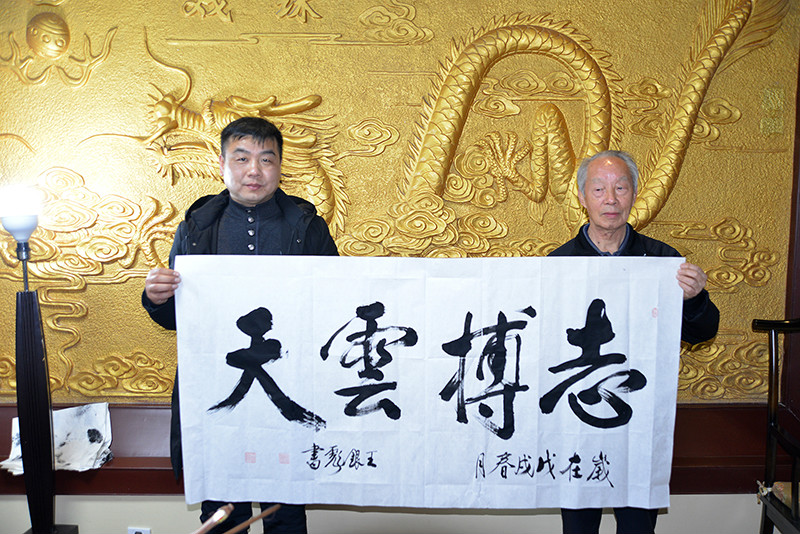 志搏雲天
歲在戊戌春月
王銀彪書